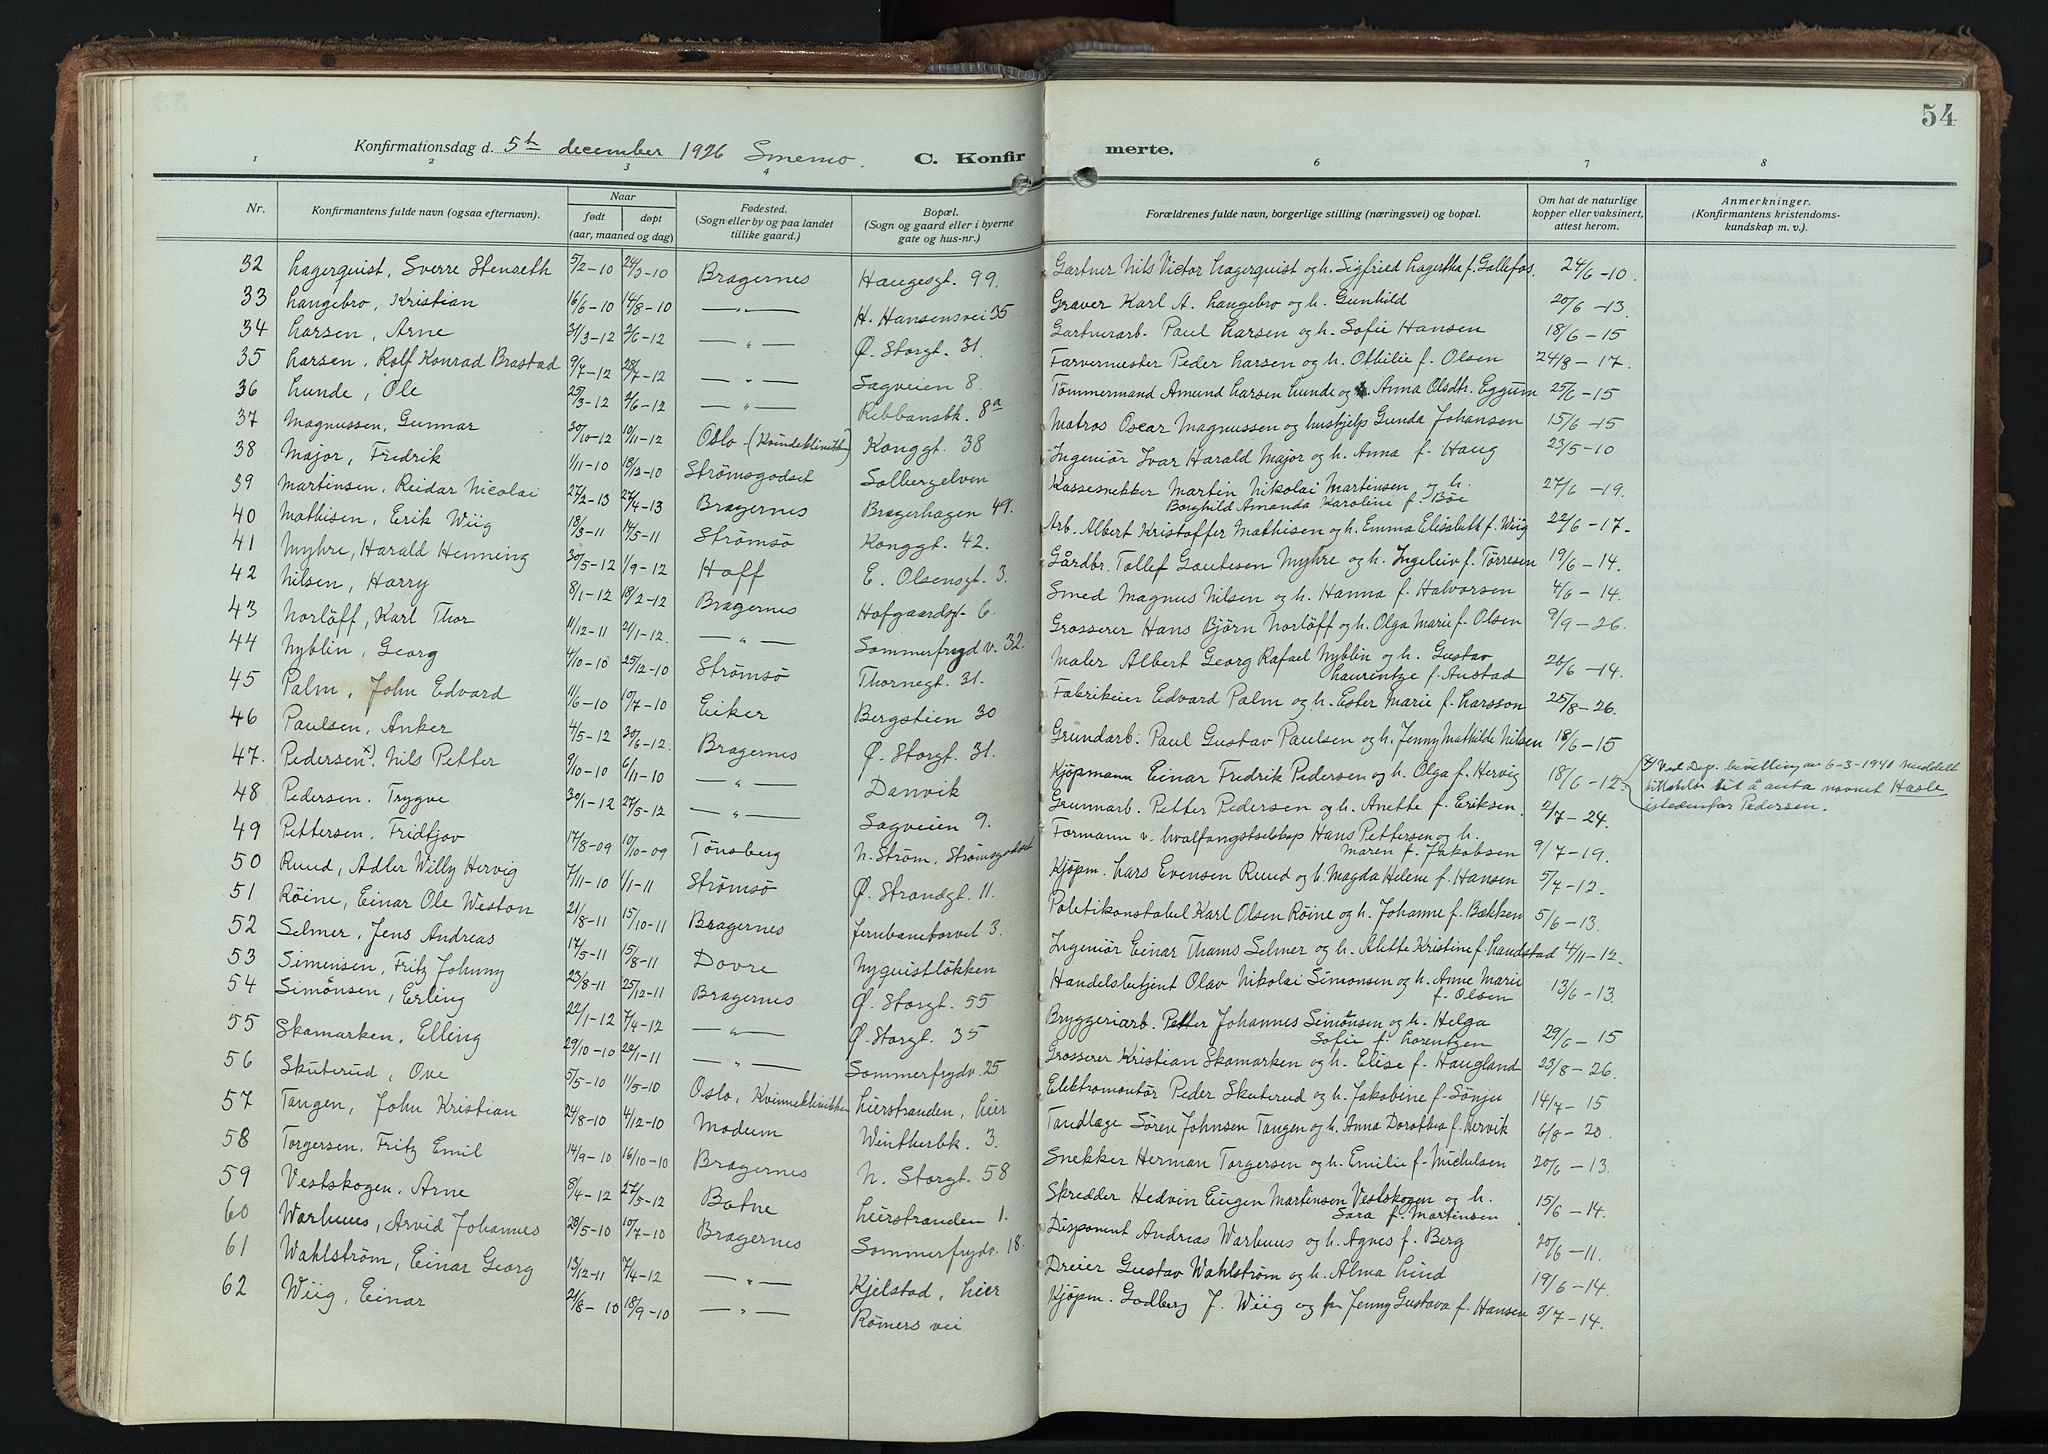 54
Konfirmationsdag d. 5th december 1926 Smemo. C. Konfirmerte.
1 2 3 4 6 7 8
Nr. Konfirmantens fulde navn (ogsaa efternavn). Naar født døpt (aar, maaned og dag) Fødested. (Sogn eller by og paa landet tillike gaard.) Bopæl. (Sogn og gaard eller i byerne gate og hus-nr.) Forældrenes fulde navn, borgerlige stilling (næringsvei) og bopæl. Om hat de naturlige kopper eller vaksinert, attest herom. Anmerkninger. (Konfirmantens kristendoms-kundskap m. v.).
32 Lagerquist, Sverre Stenseth 5/2-10 24/3-10 Bragernes Haugesgt. 99. Gartner Nils Victor Lagerquist og h. Sigfried Lagertha f. Gallefos. 24/6-10.
33 Langebro, Kristian 16/6-10 14/8-10 —"— H. Hansensvei 35 Graver Karl A. Langebro og h. Gunhild 20/6-13.
34 Larsen, Arne 31/3-12 2/6-12 —"— Ø. Storgt. 31. Gartnerarb. Paul Larsen og h. Sofie Hansen 18/6-15
35 Larsen, Rolf Konrad Brastad 9/7-12 28/7-12 —"— Sagveien 8. Farvermester Peder Larsen og h. Othilie f. Olsen 24/8-17.
36 Lunde, Ole 25/3-12 2/6-12 —"— Rebbansbk. 8a Tömmermand Amund Larsen Lunde og Anna Olsdtr. Eggum 25/6-15
37 Magnussen, Gunnar 30/10-12 10/11-12 Oslo (Kvindeklinikken) Konggt. 38 Matros Oscar Magnussen og hushjelp Gunda Johansen 15/6-15
38 Major, Fredrik 1/11-10 18/12-10 Strømsgodset Solbergelven Ingeniör Ivar Harald Major og h. Anna f. Haug 23/5-10
39 Martinsen, Reidar Nicolai 27/2-13 27/4-13 Bragernes Bragerhagen 49. Kassesnekker Martin Nikolai Martinsen og h. Borghild Amanda Karoline f. Bøe 27/6-19.
40 Mathisen, Erik Wiig 18/3-11 14/5-11 Strømsø Konggt. 42. Arb. Albert Kristoffer Mathisen og h. Emma Elisabeth f. Wiig 22/6-17.
41 Myhre, Harald Henning 30/5-12 1/9-12 Hoff E. Olsensgt. 3. Gårdbr. Tollef Gautesen Myhre og h. Ingeleiv f. Tørresen 19/6-14.
42 Nilsen, Harry 8/1-12 18/2-12 Bragernes Hofgaardsgt. 6. Smed Magnus Nilsen og h. Hanna f. Halvorsen 4/6-14.
43 Norløff, Karl Thor 11/12-11 21/1-12. —"— Sommerfryd v. 32. Grosserer Hans Bjørn Norløff og h. Olga Marie f. Olsen 9/9-26.
44 Nyblin, Georg 4/10-10 25/12-10 Strømsø Thornegt. 31. Maler Albert Georg Rafael Nyblin og h. Gustav Laurentze f. Austad 20/6-14.
45 Palm, John Edvard 11/6-10 10/7-10 Eiker Bergstien 30 Fabrikeier Edvard Palm og h. Ester Marie f. Larsson 25/8-26.
46 Paulsen, Anker 4/5-12 30/6-12. Bragernes Ø. Storgt. 31. Grundarb. Paul Gustav Paulsen og h. Jenny Mathilde Nilsen 18/6-15
47. Pedersen x), Nils Petter 9/10-10 6/11-10 —"— Danvik Kjøpmann Einar Fredrik Pedersen og h. Olga f. Hervig 18/6-12 x) Ved Dep. bevilling av 6-3-1941 meddelt tillatelse til å anta navnet Hasle istedenfor Pedersen.
48 Pedersen, Trygve 30/1-12 27/5-12 —"— Sagveien 9. Grunnarb. Petter Pedersen og h. Anette f. Eriksen 2/7-24.
49 Pettersen, Fridtjov 17/8-09 10/10-09 Tønsberg N. Strøm, Strømsgodset Formann v. hvalfangstselskap Hans Pettersen og h. Maren f. Jakobsen 9/7-19.
50 Ruud, Adler Willy Hervig 7/11-10 1/1-11 Strømsø Ø. Strandgt. 11. Kjøpm. Lars Evensen Ruud og h. Magda Helene f. Hansen 5/7-12.
51 Røine, Einar Ole Weston 21/8-11 15/10-11 Bragernes Jernbanetorvet 3. Politikonstabel Karl Olsen Røine og h. Johanne f. Bækken 5/6-13.
52 Selmer, Jens Andreas 17/5-11 15/8-11 Dovre Nyquistløkken Ingeniör Einar Thams Selmer og h. Alette Kristine f. Landstad 4/11-12.
53 Simensen, Fritz Johnny 23/8-11 25/12-11 Bragernes Ø. Storgt. 55 Handelsbetjent Olav Nikolai Simonsen og h. Anne Marie f. Olsen 13/6-13.
54 Simönsen, Erling 22/1-12 7/4-12 —"— Ø. Storgt. 35 Bryggeriarb. Petter Johannes Simönsen og h. Helga Sofie f. Lorentzen 29/6-15
55 Skamarken, Elling 29/10-10 22/1-11 —"— Sommerfrydv. 25 Grosserer Kristian Skamarken og h. Elise f. Haugland 23/8-26.
56 Skuterud, Ove 5/5-10 11/5-10 Oslo, Kvinneklinikken Lierstranden, Lier Elektromontör Peder Skuterud og h. Jakobine f. Sönju 14/7-15
57 Tangen, John Kristian 24/8-10 4/12-10 Modum Wintherbk. 3. Tandlæge Sören Johnsen Tangen og h. Anna Dorothea f. Hervik 6/8-20.
58 Torgersen, Fritz Emil 14/9-10 16/10-10 Bragernes N. Storgt. 58 Snekker Herman Torgersen og h. Emilie f. Michelsen 20/6-13.
59 Vestskogen, Arne 8/4-12 27/5-12 Botne Lierstranden 1. Skredder Hedvin Eugen Martinsen Vestskogen og h. Sara f. Martinsen 15/6-14.
60 Warhuus, Arvid Johannes 28/5-10 10/7-10 Bragernes Sommerfrydv. 18. Disponent Andreas Warhuus og h. Agnes f. Berg 20/6-11.
61 Wahlström, Einar Georg 13/12-11 7/4-12 —"— Kjelstad, Lier Dreier Gustav Wahlstrøm og h. Alma Lind 19/6-14.
62 Wiig, Einar 21/8-10 18/9-10 —"— Rømers vei Kjøpm. Godberg J. Wiig og fr. Jenny Gustava f. Hansen 3/7-14.